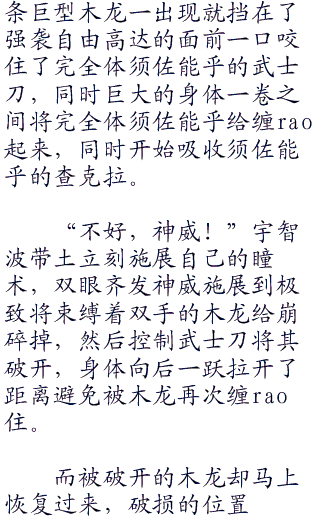 条巨型木龙一出现就挡在了
强袭自由高达的面前一口咬
住了完全体须佐能乎的武士
刀，同时巨大的身体一卷之
间将完全体须佐能乎给缠rao
起来，同时开始吸收须佐能
乎的查克拉。
“不好，神威！”宇智
波带土立刻施展自己的瞳
术，双眼齐发神威施展到极
致将束缚着双手的木龙给崩
碎掉，然后控制武士刀将其
破开，身体向后一跃拉开了
距离避免被木龙再次缠rao
住。
而被破开的木龙却马上
恢复过来，破损的位置